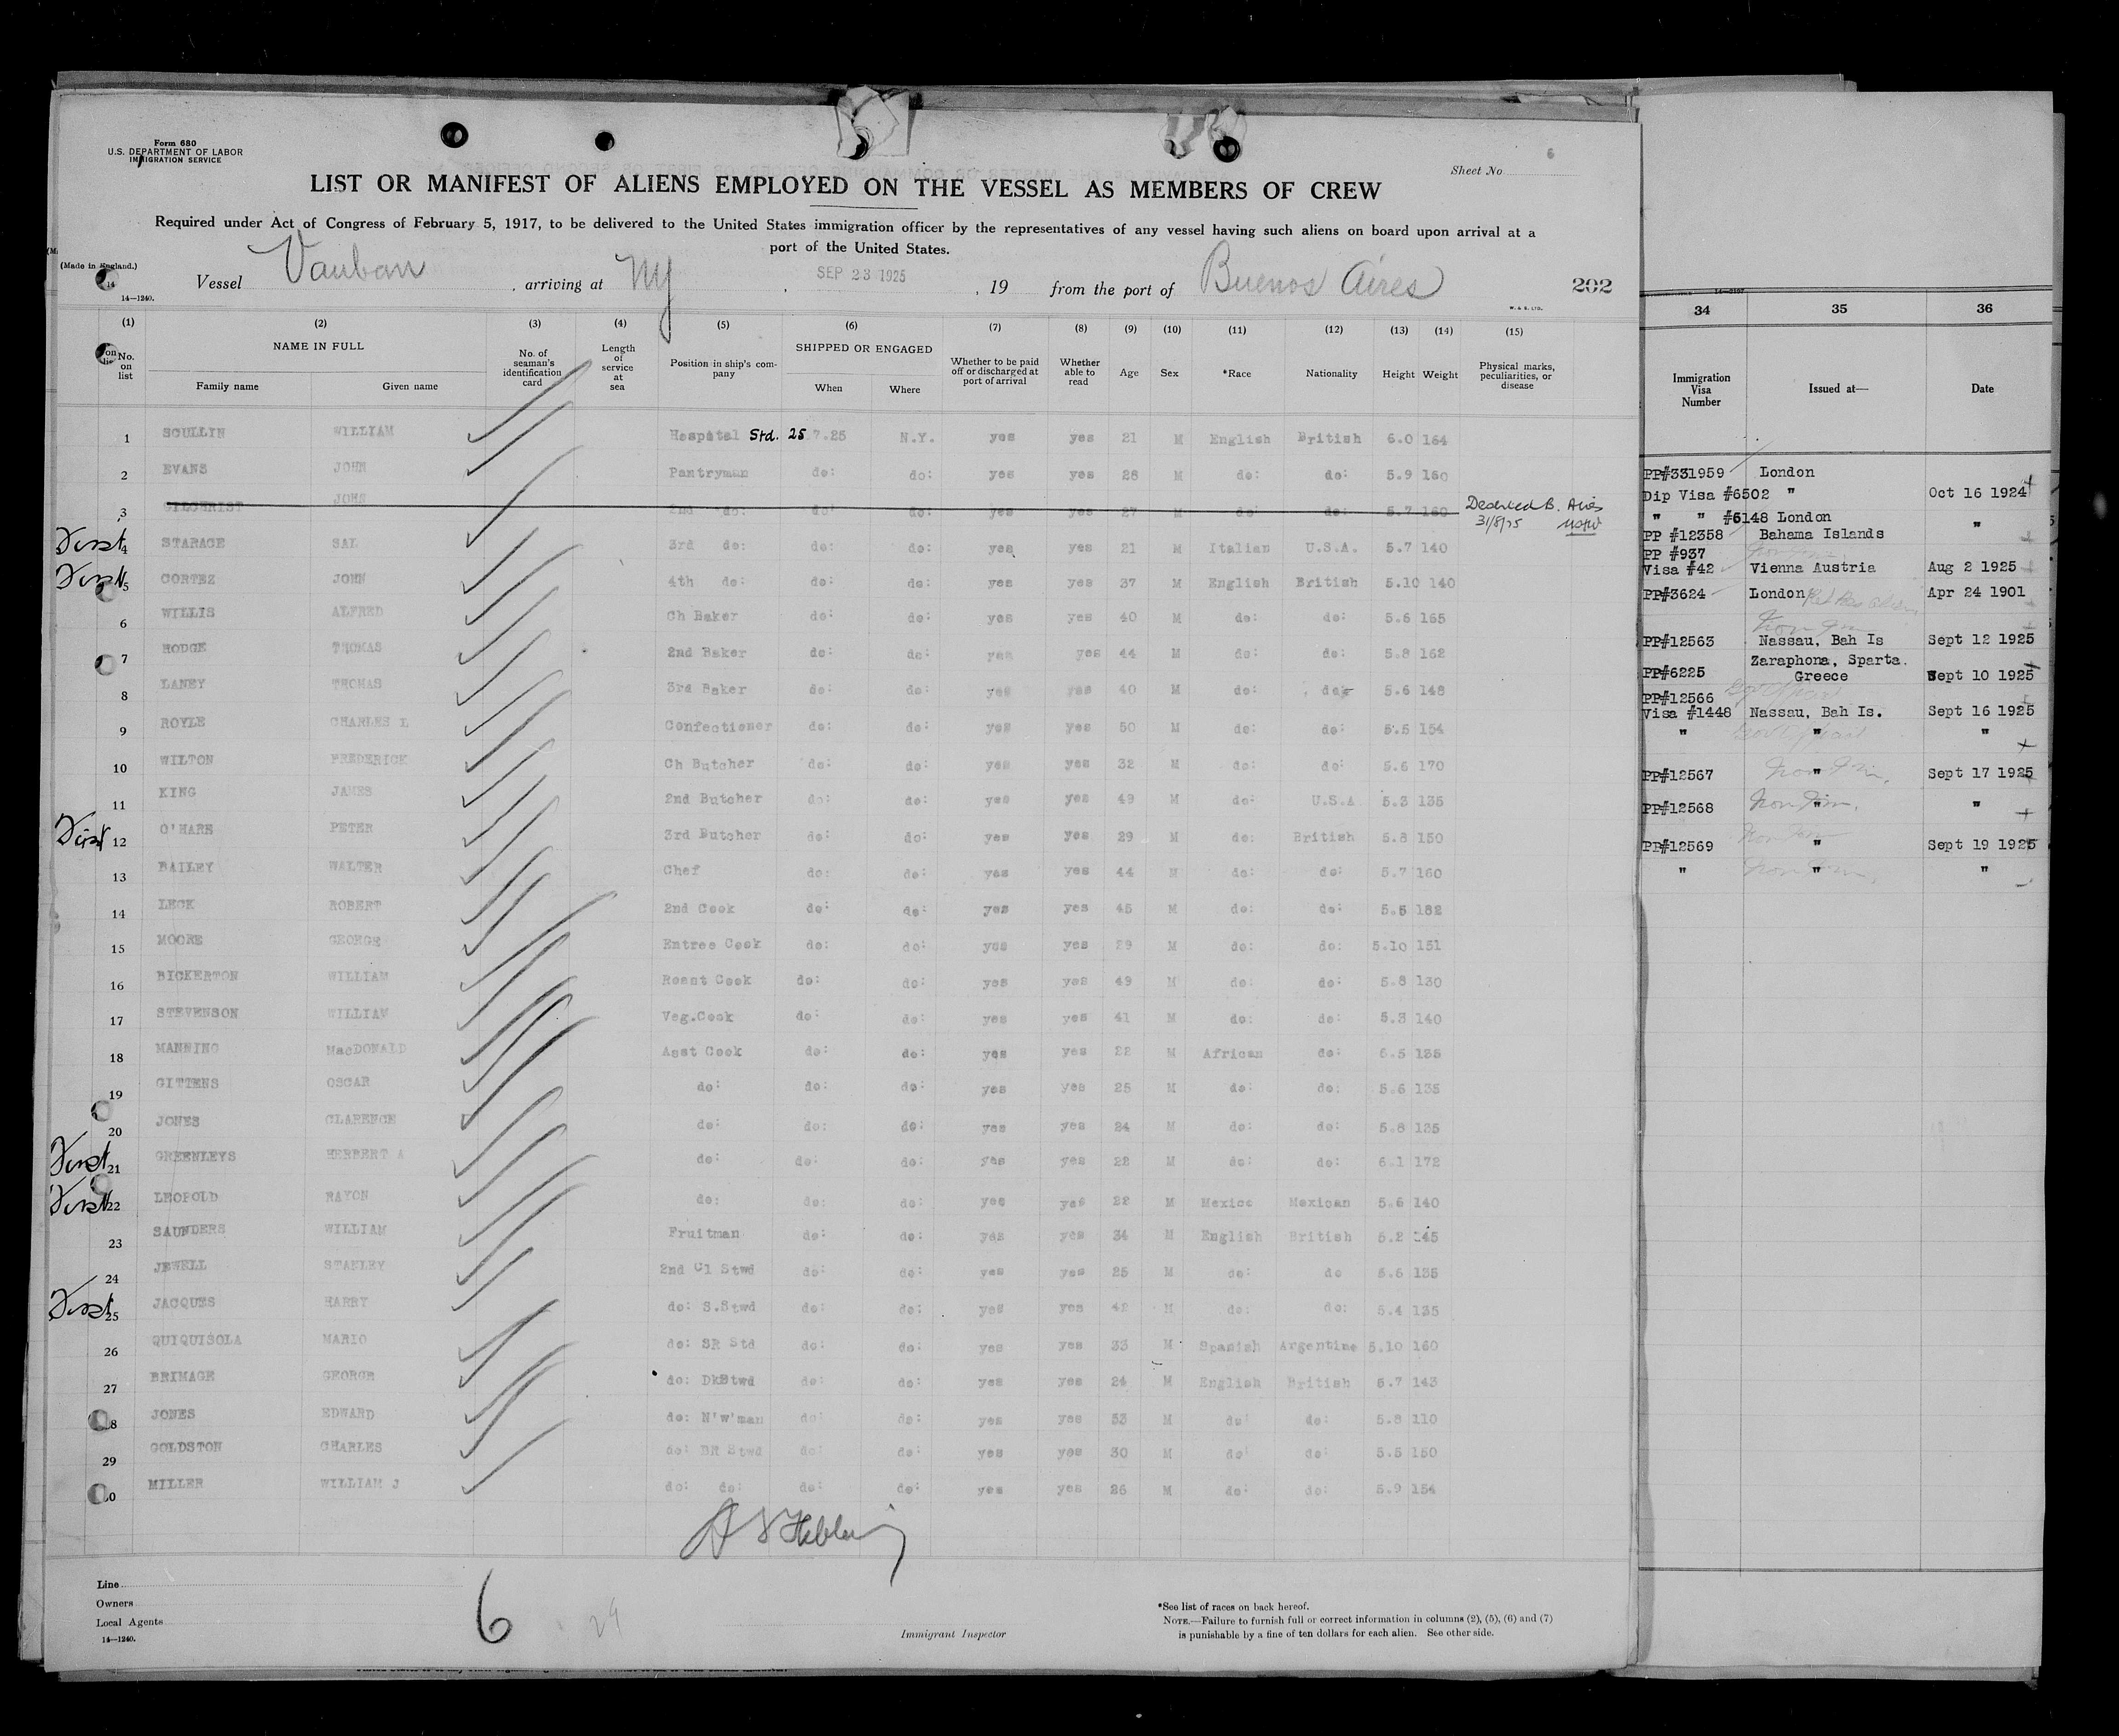 Form 680
U.S. DEPARTMENT OF LABOR
IMMIGRATION SERVICE
Sheet No. 6
LIST OR MANIFEST OF ALIENS EMPLOYED ON THE VESSEL AS MEMBERS OF CREW
Required under Act of Congress of February 5, 1917, to be delivered to the United States immigration officer by the representatives of any vessel having such aliens on board upon arrival at a
port of the United States.
(Made in England.)
14—1240.
Vessel Vauban, arriving at NY, SEP 23 1925, 19 from the port of Buenos Aires 202
W. & S. LTD.
(1) (2) (3) (4) (5) (6) (7) (8) (9) (10) (11) (12) (13) (14) (15)
No. on list NAME IN FULL Family name Given name No. of seaman's identification card Length of service at sea Position in ship's company SHIPPED OR ENGAGED When Where Whether to be paid off or discharged at port of arrival Whether able to read Age Sex *Race Nationality Height Weight Physical marks, peculiarities, or disease
1 SCULLIN WILLIAM Hospital Std. 25.7.25 N.Y. yes yes 21 M English British 6.0 164
2 EVANS JOHN Pantryman do: do: yes yes 28 M do: do: 5.9 160
3 GILCHRIST JOHN 2nd do: do: do: yes yes 27 M do: do: 5.7 160 Deserted B. Aires 31/8/25
First 4 STARACE SAL 3rd do: do: do: yes yes 21 M Italian U.S.A. 5.7 140
First 5 CORTEZ JOHN 4th do: do: do: yes yes 37 M English British 5.10 140
6 WILLIS ALFRED Ch Baker do: do: yes yes 40 M do: do: 5.6 165
7 HODGE THOMAS 2nd Baker do: do: yes yes 44 M do: do: 5.8 162
8 LANEY THOMAS 3rd Baker do: do: yes yes 40 M do: do: 5.6 148
9 ROYLE CHARLES L Confectioner do: do: yes yes 50 M do: do: 5.5 154
10 WILTON FREDERICK Ch Butcher do: do: yes yes 32 M do: do: 5.6 170
11 KING JAMES 2nd Butcher do: do: yes yes 49 M do: U.S.A 5.3 135
First 12 O'HARE PETER 3rd Butcher do: do: yes yes 29 M do: British 5.8 150
13 BAILEY WALTER Chef do: do: yes yes 44 M do: do: 5.7 160
14 LECK ROBERT 2nd Cook do: do: yes yes 45 M do: do: 5.5 182
15 MOORE GEORGE Entree Cook do: do: yes yes 29 M do: do: 5.10 151
16 BICKERTON WILLIAM Roast Cook do: do: yes yes 49 M do: do: 5.8 130
17 STEVENSON WILLIAM Veg.Cook do: do: yes yes 41 M do: do: 5.3 140
18 MANNING MacDONALD Asst Cook do: do: yes yes 22 M African do: 5.5 135
19 GITTENS OSCAR do: do: do: yes yes 25 M do: do: 5.6 135
20 JONES CLARENCE do: do: do: yes yes 24 M do: do: 5.8 135
First 21 GREENLEYS HERBERT A do: do: do: yes yes 22 M do: do: 6.1 172
First 22 LEOPOLD RAYON do: do: do: yes yes 22 M Mexico Mexican 5.6 140
23 SAUNDERS WILLIAM Fruitman do: do: yes yes 34 M English British 5.2 145
24 JEWELL STANLEY 2nd Cl Stwd do: do: yes yes 25 M do: do 5.6 135
First 25 JACQUES HARRY do: S.Stwd do: do: yes yes 42 M do: do: 5.4 135
26 QUIQUISOLA MARIO do: SR Std do: do: yes yes 33 M Spanish Argentine 5.10 160
27 BRIMAGE GEORGE do: DkStwd do: do: yes yes 24 M English British 5.7 143
28 JONES EDWARD do: N'w'man do: do: yes yes 53 M do: do: 5.8 110
29 GOLDSTON CHARLES do: BR Stwd do: do: yes yes 30 M do: do: 5.5 150
30 MILLER WILLIAM J do: do: do: do: yes yes 26 M do: do: 5.9 154
Line
Owners
Local Agents
14—1240.
6
29
Immigrant Inspector
*See list of races on back hereof.
NOTE.—Failure to furnish full or correct information in columns (2), (5), (6) and (7)
is punishable by a fine of ten dollars for each alien. See other side.
34 35 36
Immigration Visa Number Issued at— Date
PP#331959 London
Dip Visa #6502 " Oct 16 1924
" " #6148 London "
PP #12358 Bahama Islands
PP #937
Visa #42 Vienna Austria Aug 2 1925
PP#3624 London Apr 24 1901
PP#12563 Nassau, Bah Is Sept 12 1925
Zaraphona, Sparta.
PP#6225 Greece Sept 10 1925
PP#12566
Visa #1448 Nassau, Bah Is. Sept 16 1925
" " "
PP#12567 " Sept 17 1925
PP#12568 " "
PP#12569 " Sept 19 1925
" " "